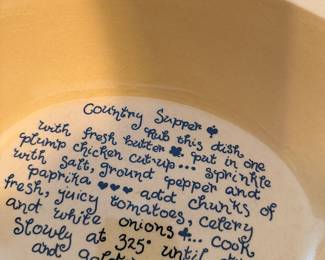 Country Supper
rub this dish
with fresh butter put in one
plump chicken cut-up... sprinkle
with salt, ground pepper and
paprika ♥♥♥ add chunks of
fresh, juicy tomatoes, celery
and white onions ... cook
slowly at 325° until
and